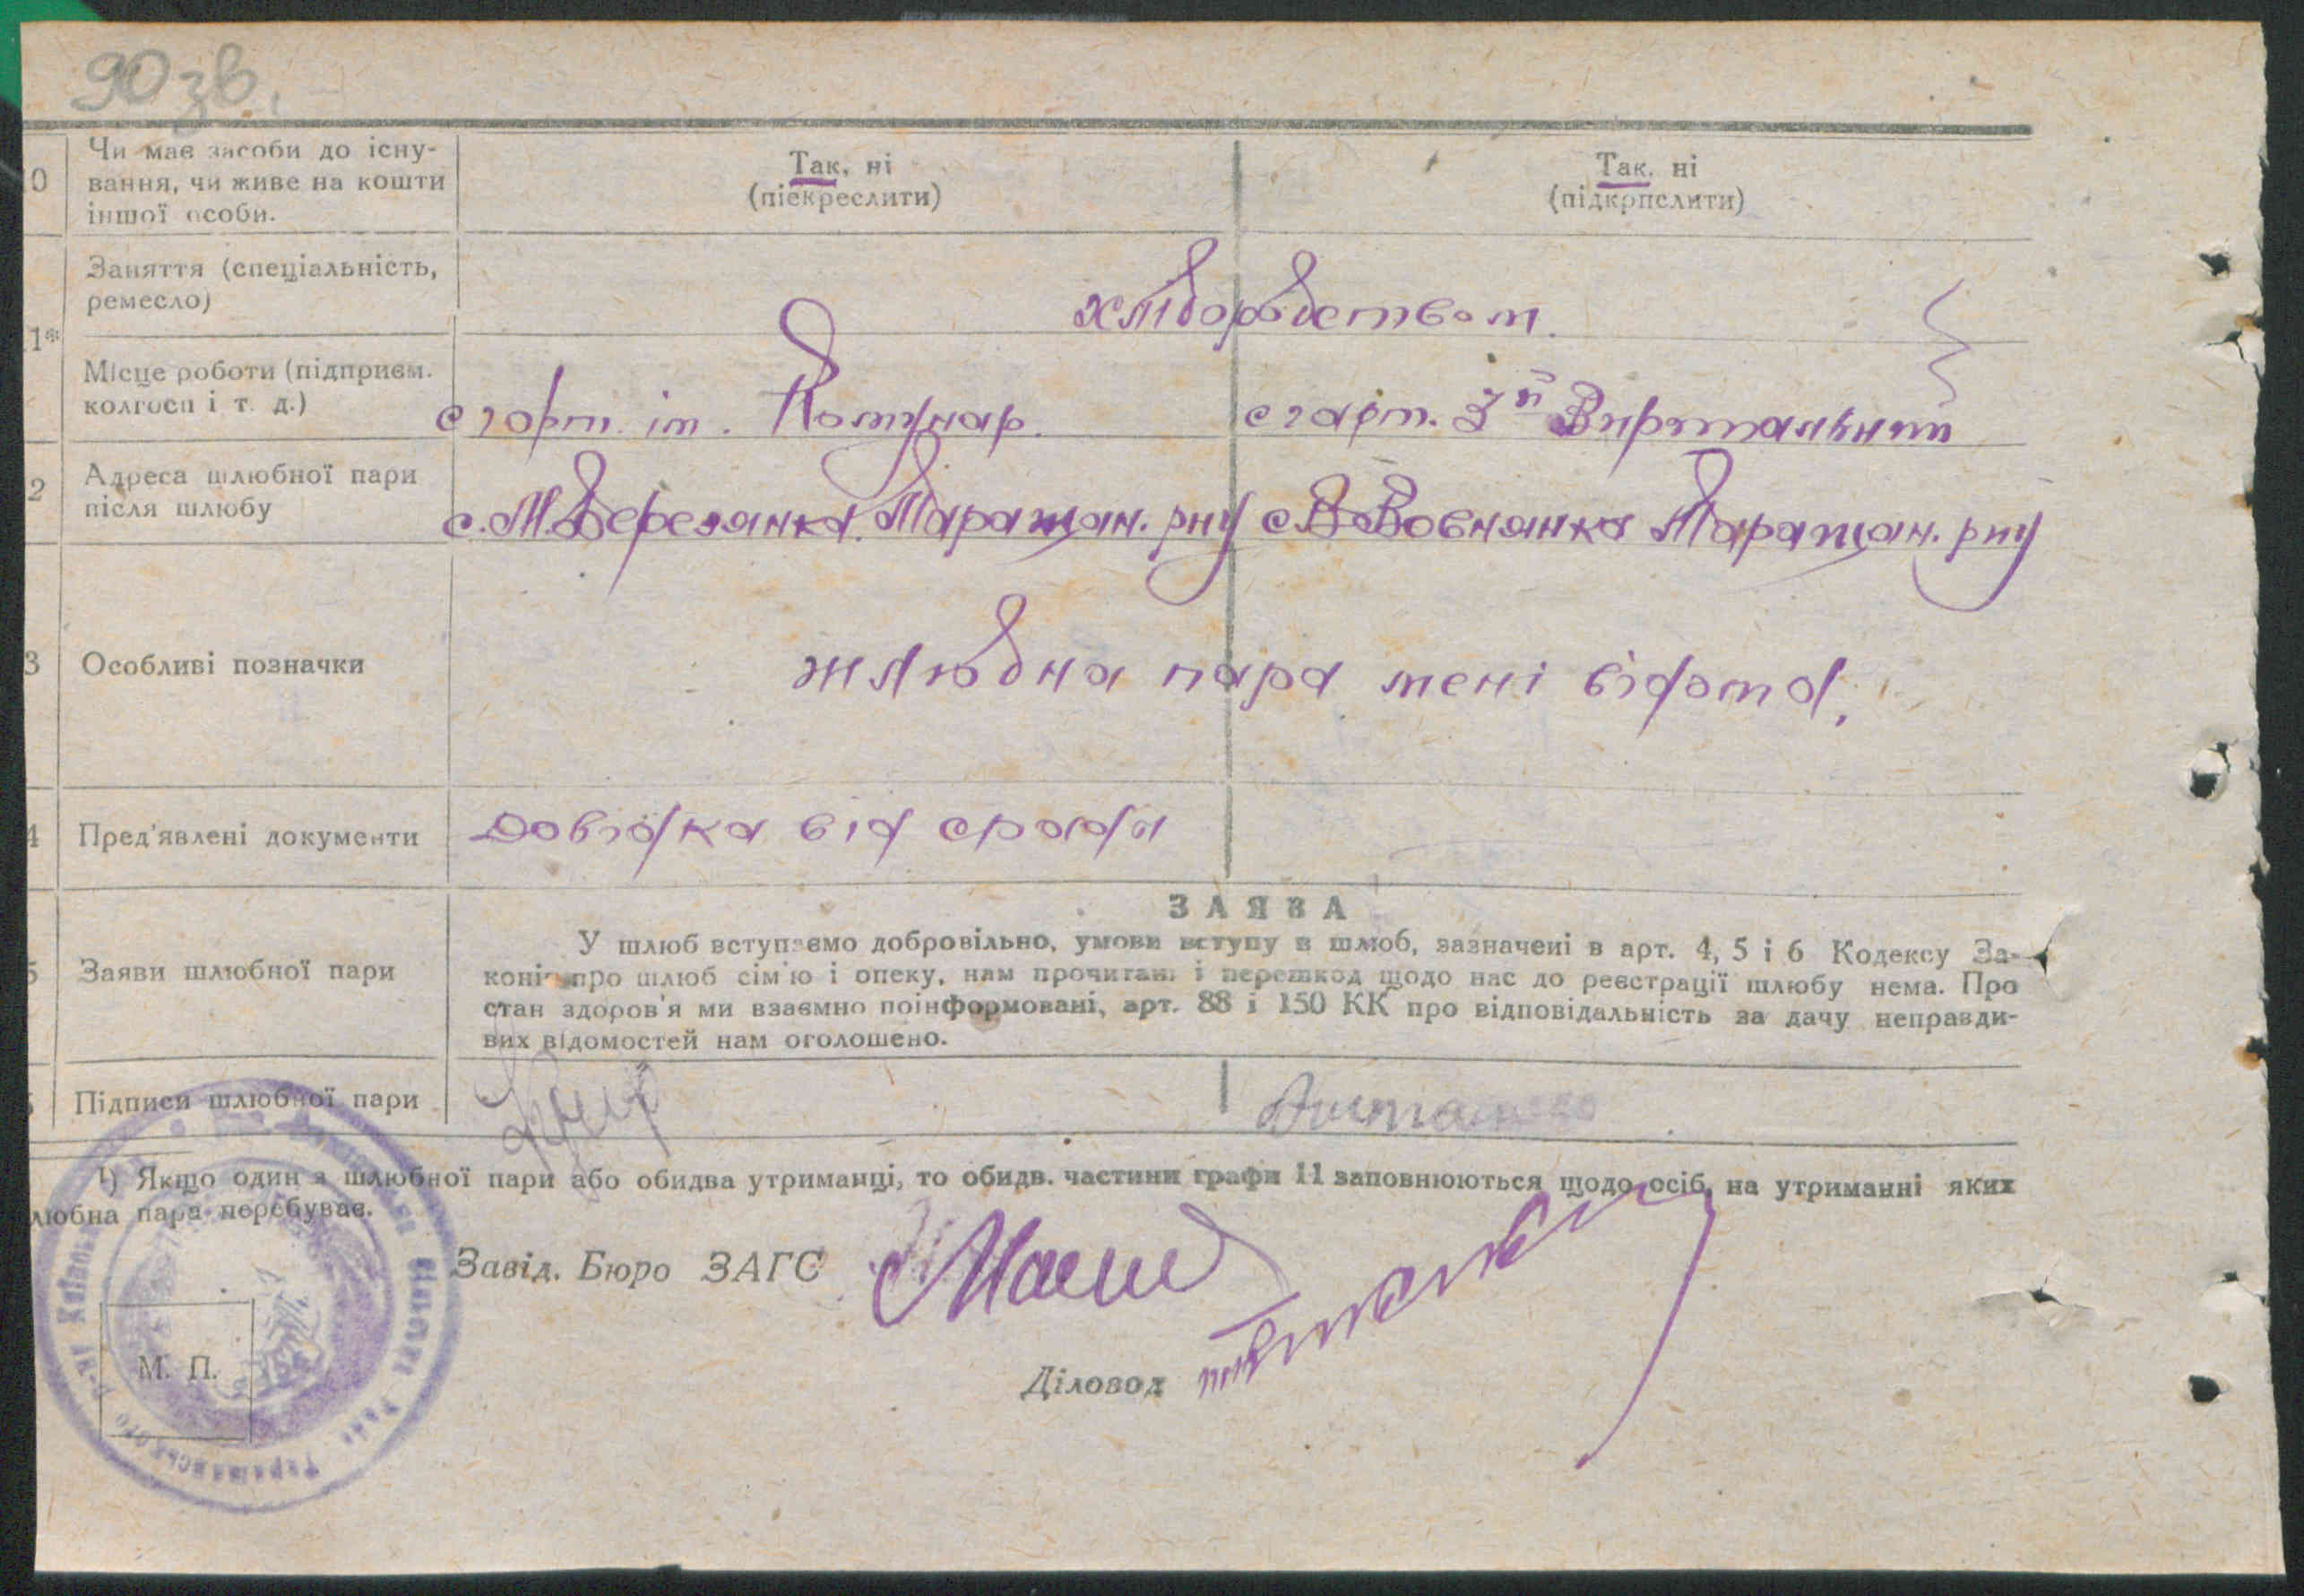 90 зв.
10 Чи має засоби до існу-
вання, чи живе на кошти
іншої особи.
Так, ні
(піекреслити)
Так, ні
(підкрпслити)
11*
Заняття (спеціальність,
ремесло)
хлібороббством.
Місце роботи (підприєм.
колгосп і т. д.)
с г арт. ім. Комунар.
с г арт. 3й Вирішальний
2 Адреса шлюбної пари
після шлюбу
с. М. Березянка. Таращан. рну
с В Вовнянка Таращан. рну
3 Особливі позначки
жлюбна пара мені відома.
4 Пред'явлені документи
Довідка від сради
ЗАЯВА
5 Заяви шлюбної пари
У шлюб вступаємо добровільно, умови вступу в шлюб, зазначені в арт. 4, 5 і 6 Кодексу За-
конів про шлюб сім'ю і опеку, нам прочитані і перешкод щодо нас до реєстрації шлюбу нема. Про
стан здоров'я ми взаємно поінформовані, арт. 88 і 150 КК про відповідальність за дачу неправди-
вих відомостей нам оголошено.
Підписи шлюбної пари
¹) Якщо один з шлюбної пари або обидва утриманці, то обидв. частини графи 11 заповнюються щодо осіб, на утриманні яких
любна пара перебуває.
Завід. Бюро ЗАГС
М. П.
Діловод